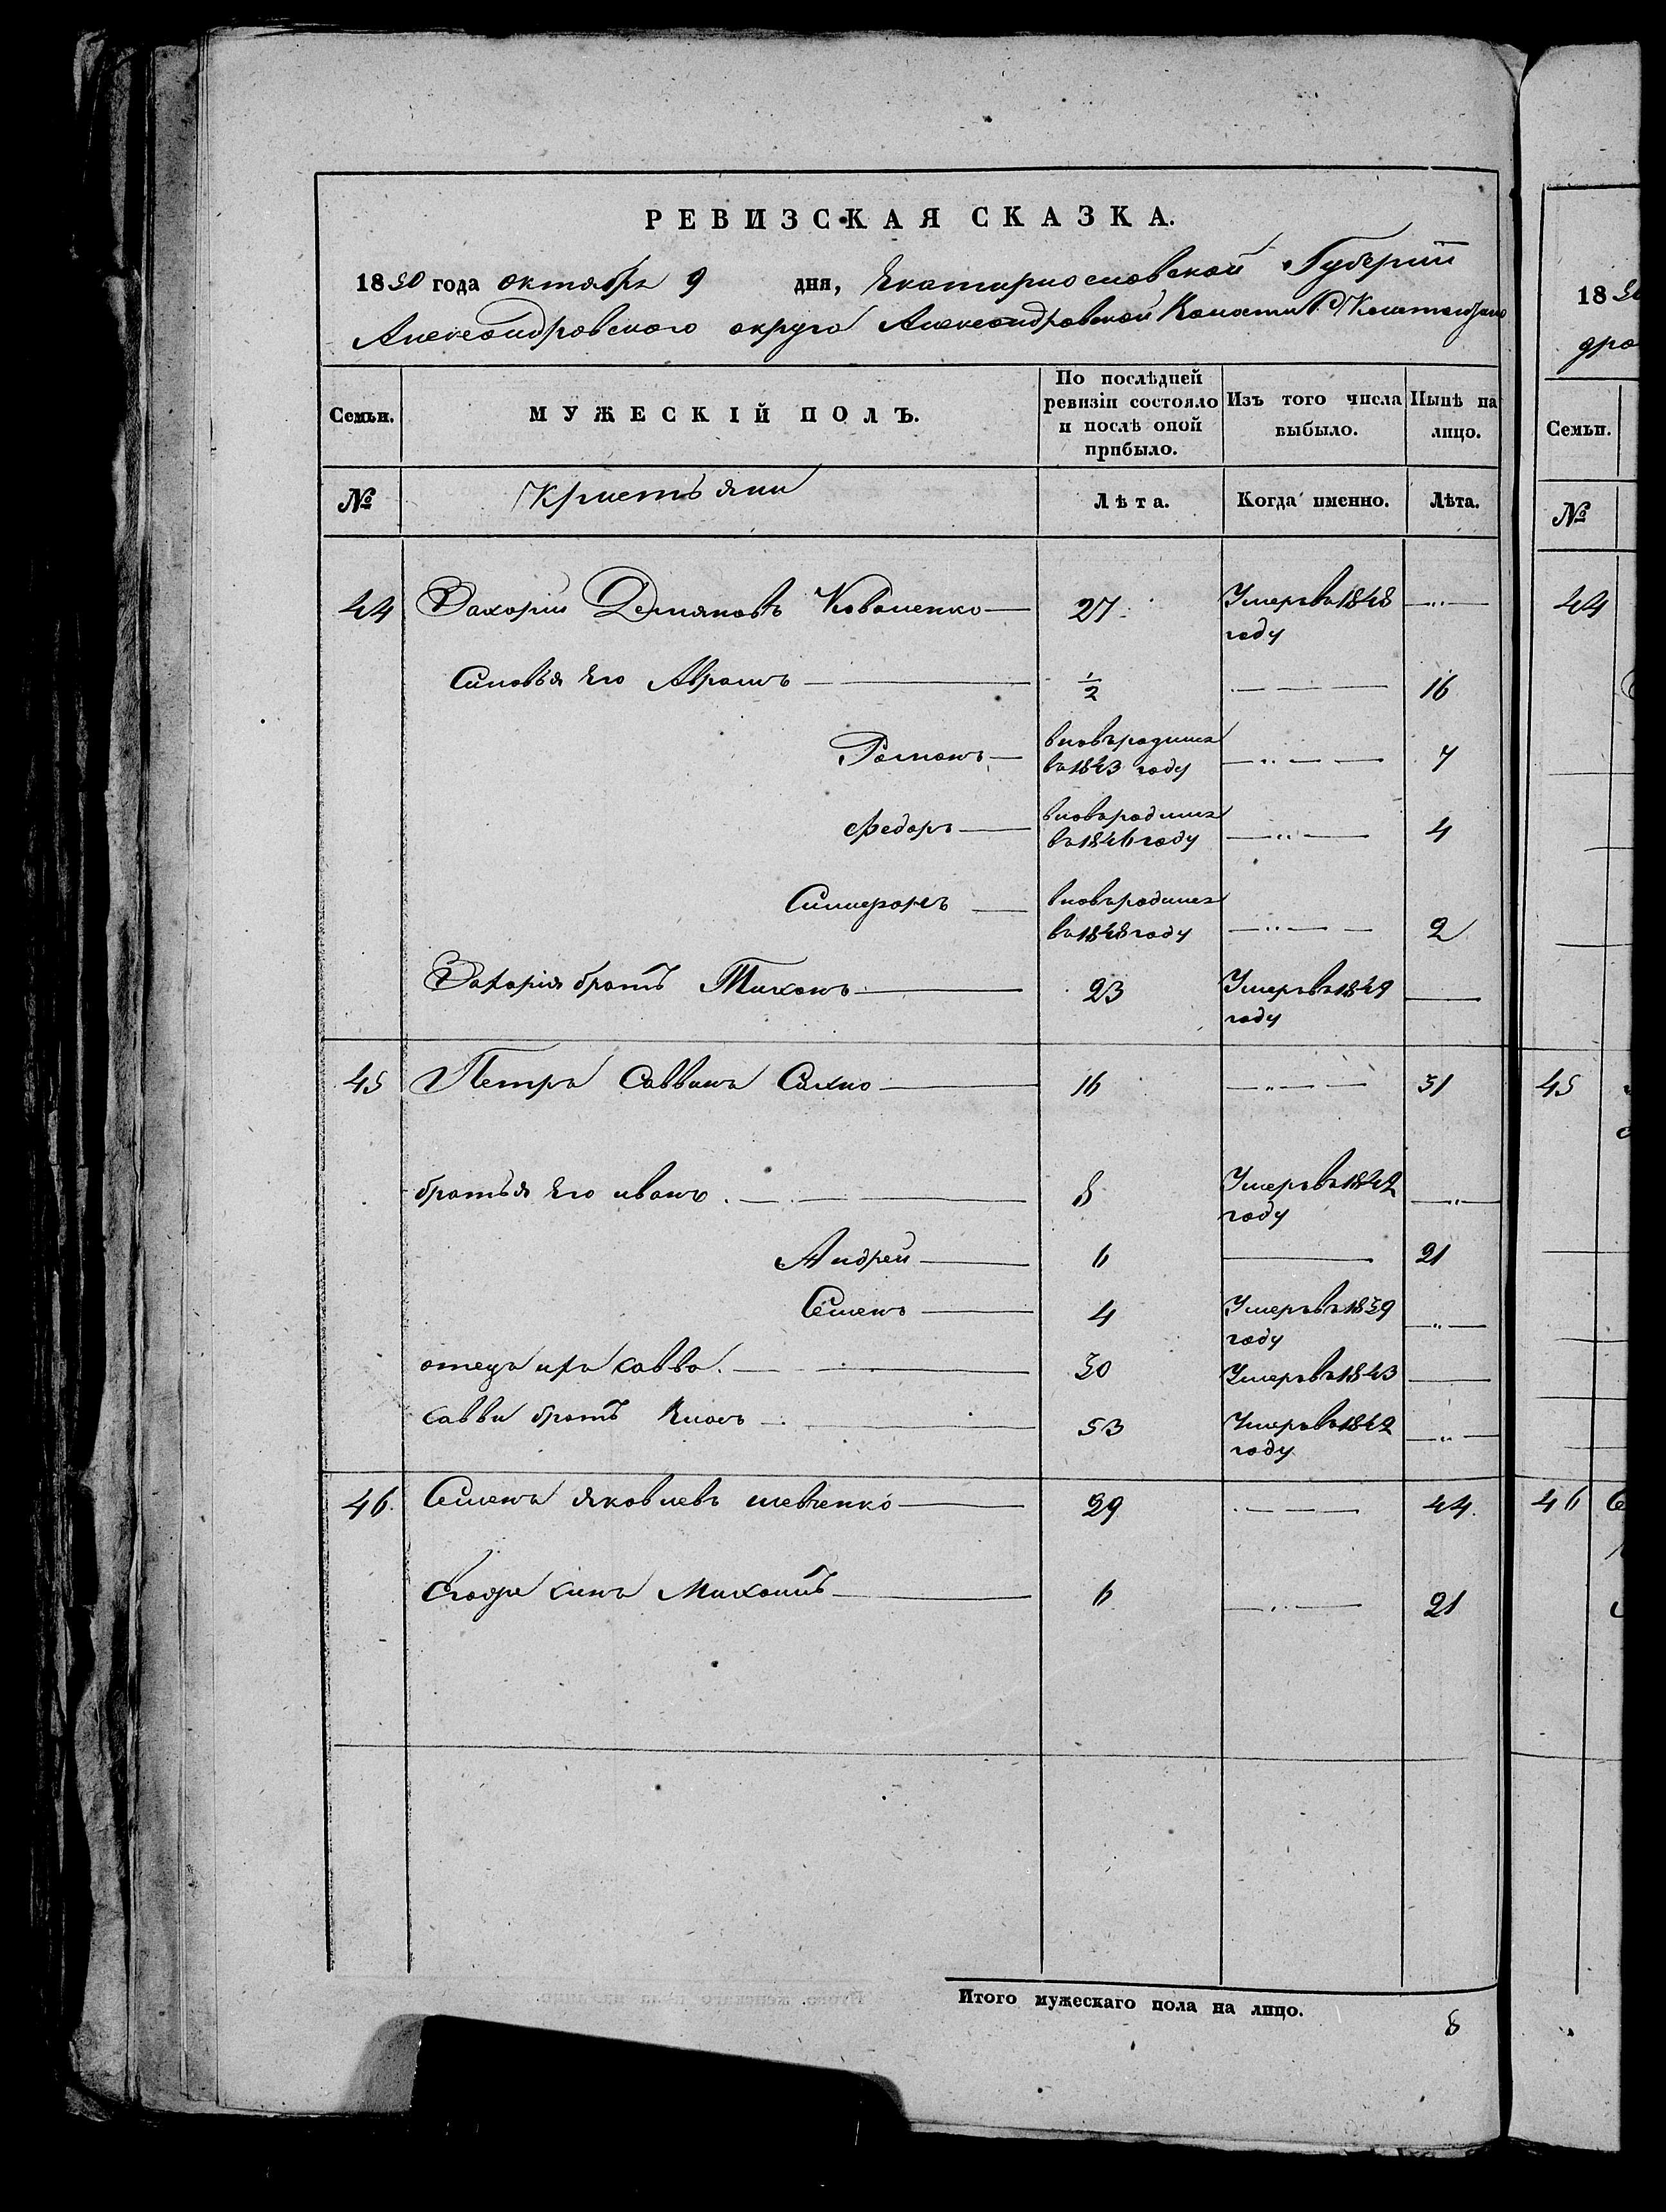 РЕВИЗСКАЯ СКАЗКА.
1850 года октября 9 дня, Екатирнославской Губернии
Александровского округа Александровской Волости
Семьи.
МУЖЕСКІЙ ПОЛЪ.
По послѣдней ревизіи состояло и послѣ оной прибыло.
Изъ того числа выбыло.
Нынѣ на лицо.
№
Кристьяни
Лѣта.
Когда именно.
Лѣта.
44 Захарий Демяновъ Коваленко 27 Умеръ въ 1848
году
Синовья Его Аврамъ 1/2 16
Романъ вновьродился
въ 1843 году 7
Федоръ вновьродился
въ 1846 году 4
вновьродился
въ 1848 году 2
Захарія братъ Тихонъ 23 Умеръ въ 1849
году
45 Петръ Саввинъ Сахно 16 31
братья Его иванъ 8 Умеръ въ 1842
году
Андрей 6 21
Семенъ 4 Умеръ въ 1839
году
отецъ ихъ Савва 50 Умеръ въ 1843
Савви братъ 53 Умеръ въ 1842
году
46. Семенъ яковлевъ шевченко 29 44.
синъ Михаилъ 6 21
Итого мужескаго пола на лицо. 8
18 50
дра
Семьи.
№
44
45
46